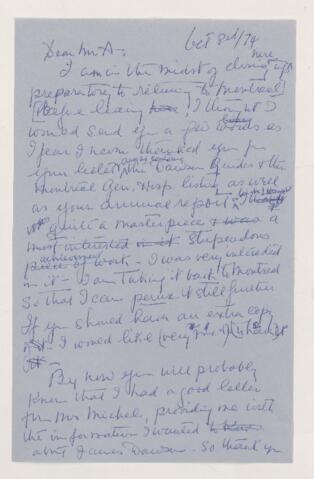 Oct 3rd/79
Dear Mr A-
I am in the midst of closing up here
preparatory to returning to Montreal
Before leaving here, I thought I
would send you a few words as
I fear I never thanked you for
your letter the Dawson Guides & the
Montreal Gen. Hosp. listing as well
as your annual report
was quite a master piece & was a
most interested in it stupendous
piece achievement of work - I was very interested
in it - I am taking it back to Montreal
so that I can peruse it still further
If you should have an extra copy
of it - I would like (very much)
By now you will probably
know that I had a good letter
from Mrs Michel, providing me with
the information I wanted
about James Dawson. So thank you